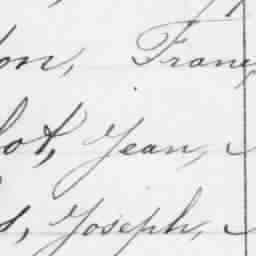 on, Franç
lot, Jean,
s, Joseph,